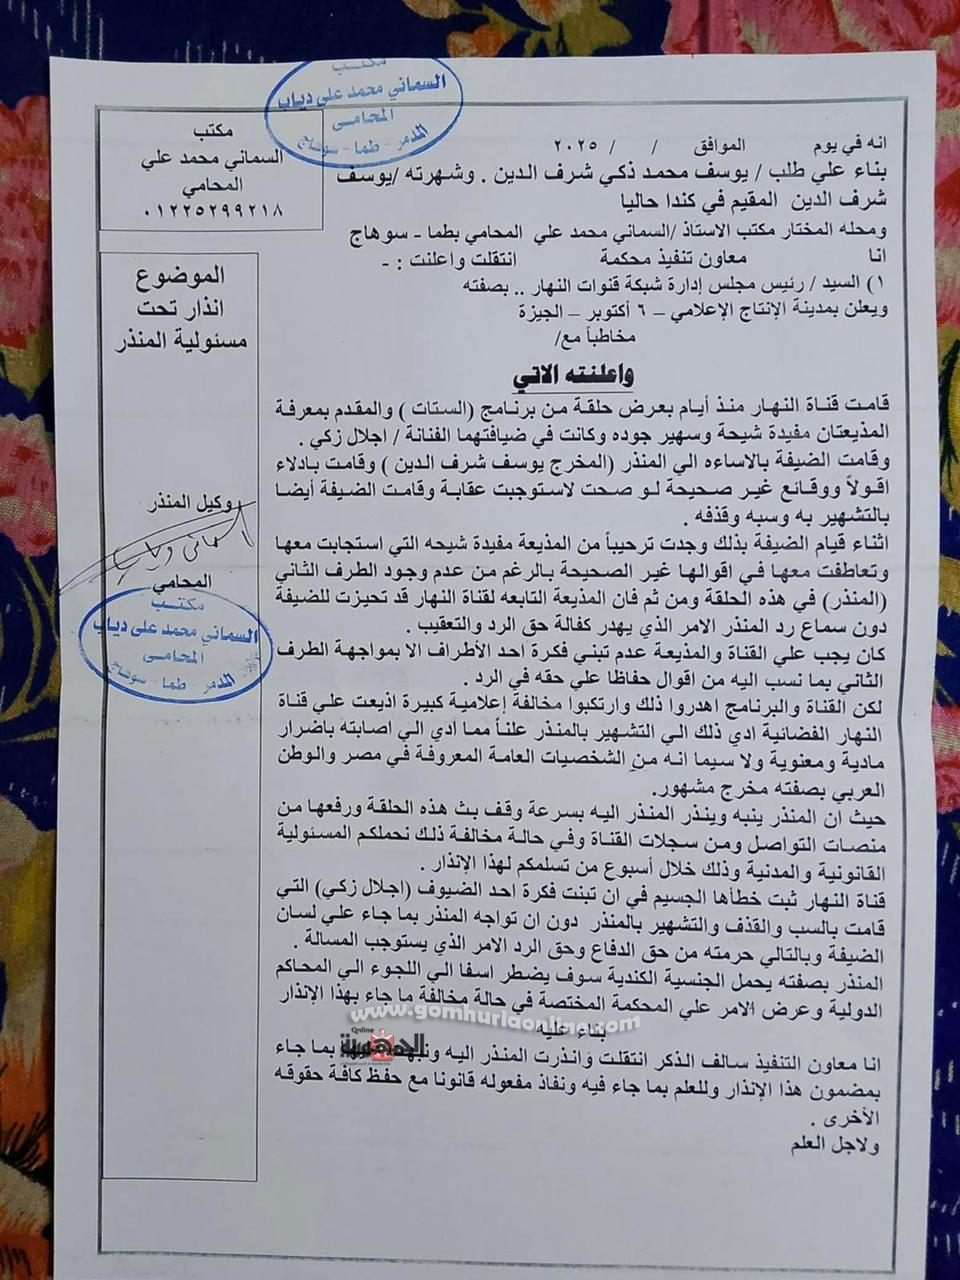 مكتب
السماني محمد علي دياب
المحامى
المدمر - طما - سوهاج
مكتب
السماني محمد علي
المحامي
٠١٢٢٥٢٩٩٢١٨
انه في يوم الموافق / / ٢٠٢٥
بناء علي طلب / يوسف محمد ذكي شرف الدين . وشهرته /يوسف
شرف الدين المقيم في كندا حاليا
ومحله المختار مكتب الاستاذ /السماني محمد علي المحامي بطما - سوهاج
انا معاون تنفيذ محكمة انتقلت واعلنت : -
١) السيد / رئيس مجلس إدارة شبكة قنوات النهار .. بصفته
ويعلن بمدينة الإنتاج الإعلامي – ٦ أكتوبر – الجيزة
مخاطباً مع/
الموضوع
انذار تحت
مسئولية المنذر
واعلنته الاتي
قامت قناة النهار منذ أيام بعرض حلقة من برنامج (الستات ) والمقدم بمعرفة
المذيعتان مفيدة شيحة وسهير جوده وكانت في ضيافتهما الفنانة / اجلال زكي .
وقامت الضيفة بالاساءه الي المنذر (المخرج يوسف شرف الدين ) وقامت بادلاء
اقولاً ووقائع غير صحيحة لو صحت لاستوجبت عقابة وقامت الضيفة أيضا
بالتشهير به وسبه وقذفه .
اثناء قيام الضيفة بذلك وجدت ترحيباً من المذيعة مفيدة شيحه التي استجابت معها
وتعاطفت معها في اقولها غير الصحيحة بالرغم من عدم وجود الطرف الثاني
(المنذر) في هذه الحلقة ومن ثم فان المذيعة التابعه لقناة النهار قد تحيزت للضيفة
دون سماع رد المنذر الامر الذي يهدر كفالة حق الرد والتعقيب .
كان يجب علي القناة والمذيعة عدم تبني فكرة احد الأطراف الا بمواجهة الطرف
الثاني بما نسب اليه من اقوال حفاظا علي حقه في الرد .
لكن القناة والبرنامج اهدروا ذلك وارتكبوا مخالفة إعلامية كبيرة اذيعت علي قناة
النهار الفضائية ادي ذلك الي التشهير بالمنذر علناً مما ادي الي اصابته باضرار
مادية ومعنوية ولا سيما انه من الشخصيات العامة المعروفة في مصر والوطن
العربي بصفته مخرج مشهور.
حيث ان المنذر ينبه وينذر المنذر اليه بسرعة وقف بث هذه الحلقة ورفعها من
منصات التواصل ومن سجلات القناة وفي حالة مخالفة ذلك نحملكم المسئولية
القانونية والمدنية وذلك خلال أسبوع من تسلمكم لهذا الإنذار .
قناة النهار ثبت خطأها الجسيم في ان تبنت فكرة احد الضيوف (اجلال زكي) التي
قامت بالسب والقذف والتشهير بالمنذر دون ان تواجه المنذر بما جاء علي لسان
الضيفة وبالتالي حرمته من حق الدفاع وحق الرد الامر الذي يستوجب المسالة .
المنذر بصفته يحمل الجنسية الكندية سوف يضطر اسفا الي اللجوء الي المحاكم
الدولية وعرض الامر علي المحكمة المختصة في حالة مخالفة ما جاء بهذا الإنذار
www.gomhuriaonline.com
بناء عليه
Online
الجمهورية
انا معاون التنفيذ سالف الذكر انتقلت وانذرت المنذر اليه بما جاء
بمضمون هذا الإنذار وللعلم بما جاء فيه ونفاذ مفعوله قانونا مع حفظ كافة حقوقه
الأخرى .
ولاجل العلم
وكيل المنذر
المحامي
مكتب
السماني محمد علي دياب
المحامى
المدمر - طما - سوهاج